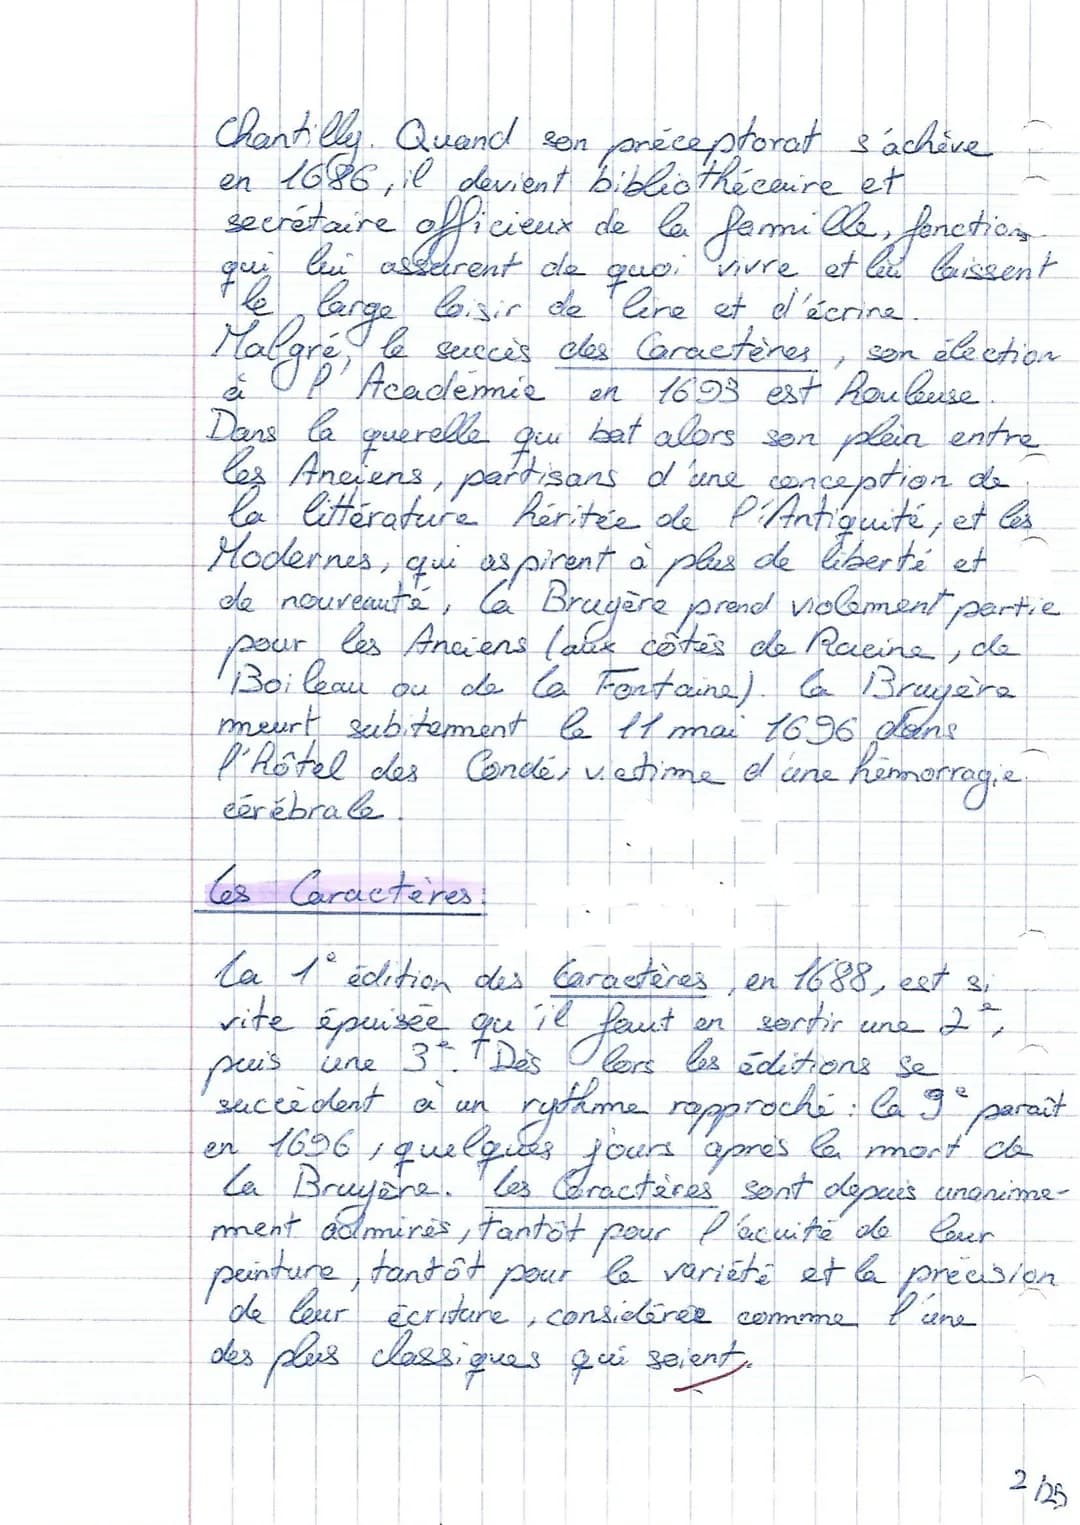 Chantilly. Quand son préceptorat s'achève
en 1686, il devient bibliothécaire et
secrétaire officieux de la famille, fonctions
qui lui assurent de quoi vivre et lui laissent
le large loisir de lire et d'écrire.
Malgré, le succès des Caractères, son élection
à l'Académie en 1693 est houleuse.
Dans la querelle qui bat alors son plein entre
les Anciens, partisans d'une conception de
la littérature héritée de l'Antiquité, et les
Modernes, qui aspirent à plus de liberté et
de nouveauté, La Bruyère prend violemment partie
pour les Anciens (aux côtés de Racine, de
Boileau ou de La Fontaine). La Bruyère
meurt subitement le 11 mai 1696 dans
l'hôtel des Condé, victime d'une hémorragie
cérébrale.
Les Caractères:
La 1e édition des Caractères, en 1688, est si
vite épuisée qu'il faut en sortir une 2e,
puis une 3e. Dès lors les éditions se
succèdent à un rythme rapproché : la 9e paraît
en 1696, quelques jours après la mort de
La Bruyère. Les Caractères sont depuis unanime-
ment admirés, tantôt pour l'acuité de leur
peinture, tantôt pour la variété et la précision
de leur écriture, considérée comme l'une
des plus classiques qui soient.
2/25